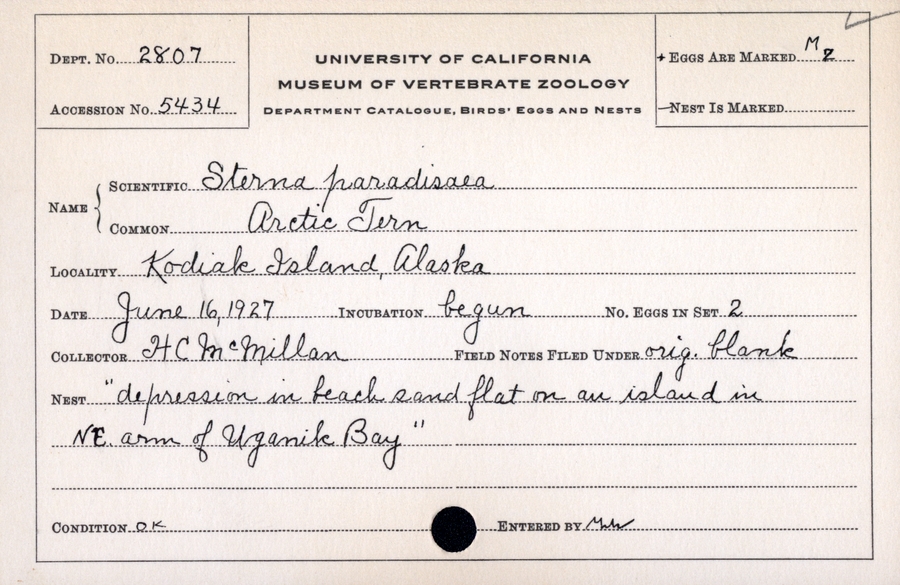 DEPT. No. 2807
ACCESSION No. 5434
UNIVERSITY OF CALIFORNIA
MUSEUM OF VERTEBRATE ZOOLOGY
DEPARTMENT CATALOGUE, BIRDS' EGGS AND NESTS
+ EGGS ARE MARKED M/2
—NEST IS MARKED
NAME
SCIENTIFIC Sterna paradisaea
COMMON Arctic Tern
LOCALITY Kodiak Island, Alaska
DATE June 16, 1927 INCUBATION begun No. EGGS IN SET 2
COLLECTOR H C McMillan FIELD NOTES FILED UNDER orig. blank
NEST "depression in beach sand flat on an island in
NE. arm of Uganik Bay"
CONDITION OK ENTERED BY